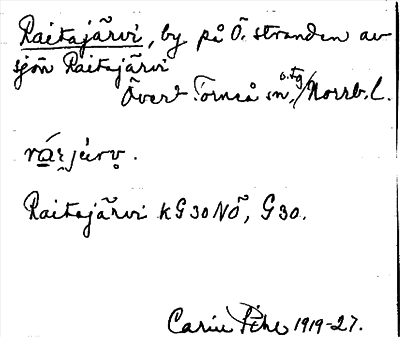 Raitajärvi, by på Ö. stranden av
sjön Raitajärvi
Övert Torneå sn, Norrb. l.
Raitajärvi KG30NÖ, G30.
Carin Pihl 1919-27.